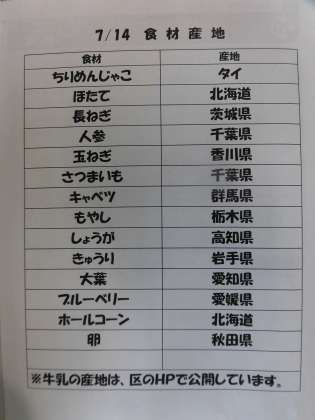 7/14 食材産地
食材 産地
ちりめんじゃこ タイ
ほたて 北海道
長ねぎ 茨城県
人参 千葉県
玉ねぎ 香川県
さつまいも 千葉県
キャベツ 群馬県
もやし 栃木県
しょうが 高知県
きゅうり 岩手県
大葉 愛知県
ブルーベリー 愛媛県
ホールコーン 北海道
卵 秋田県
※牛乳の産地は、区のHPで公開しています。